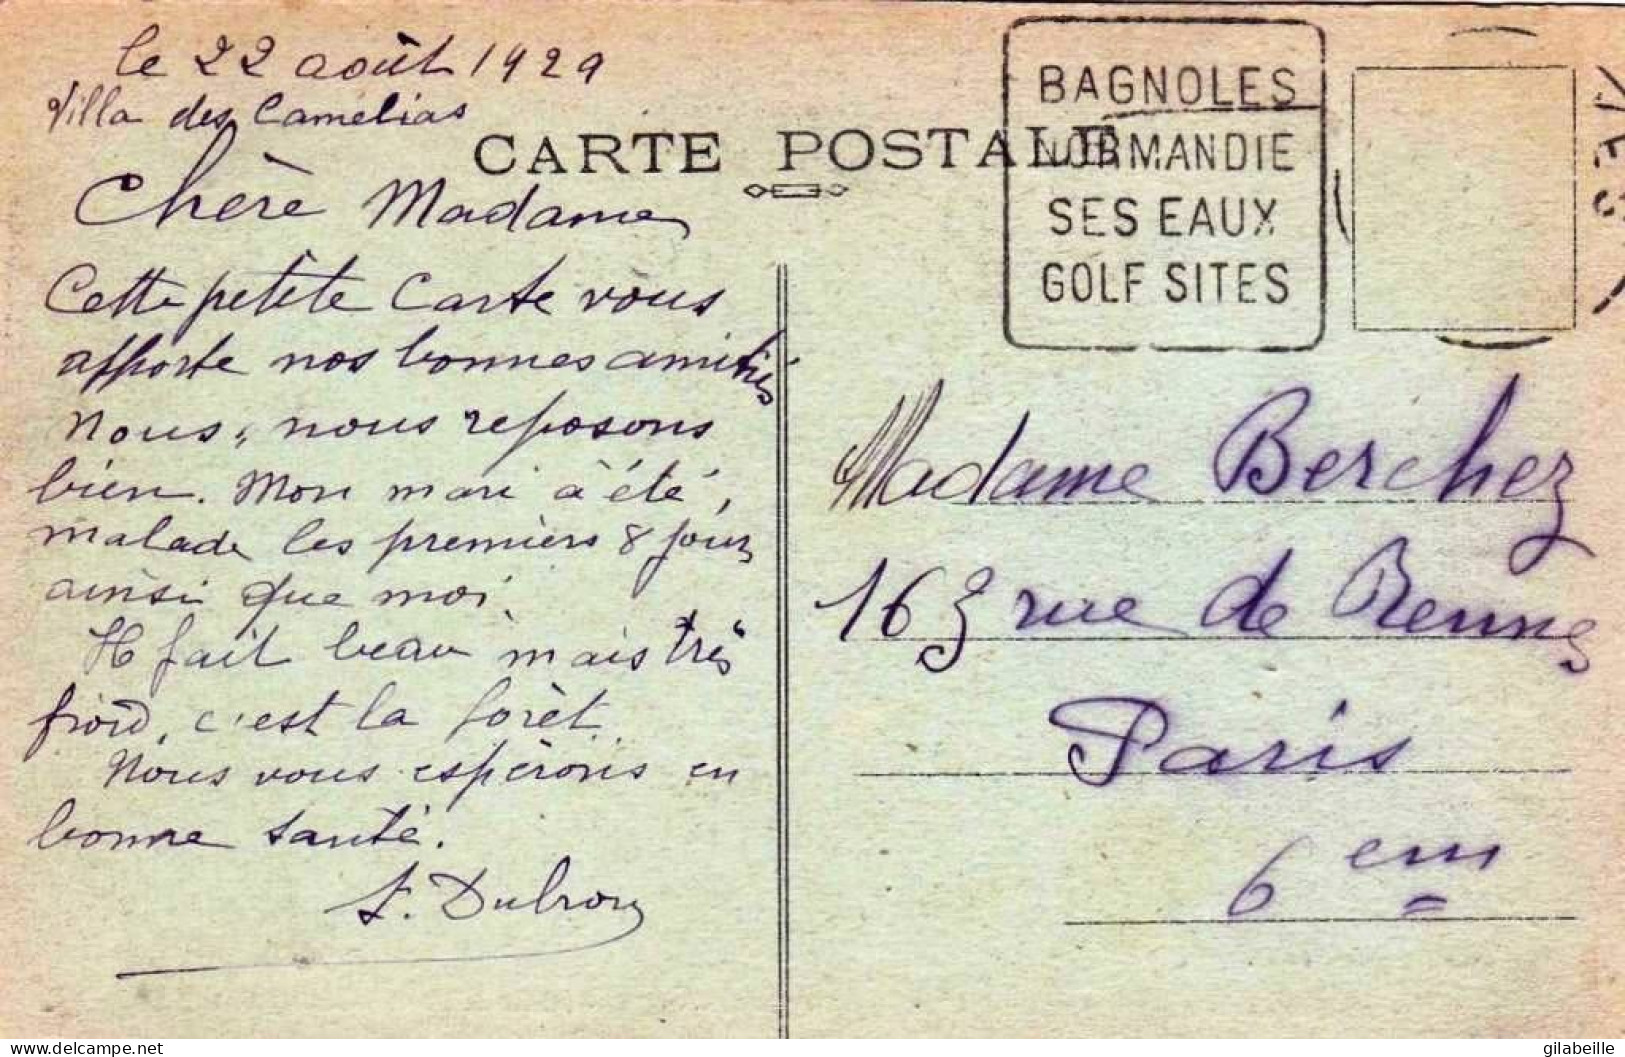 le 22 août 1929
Villa des Camélias
CARTE POSTALE
Chère Madame
Cette petite Carte vous
apporte nos bonnes amitiés
Nous, nous reposons
bien. Mon mari à été,
malade les premiers 8 jours
ainsi que moi.
Il fait beau mais très
froid, c'est la forêt.
Nous vous espérons en
bonne santé.
BAGNOLES
NORMANDIE
SES EAUX
GOLF SITES
Madame Berchez
163 rue de Rennes
Paris
6 em
delcampe.net
gilabeille